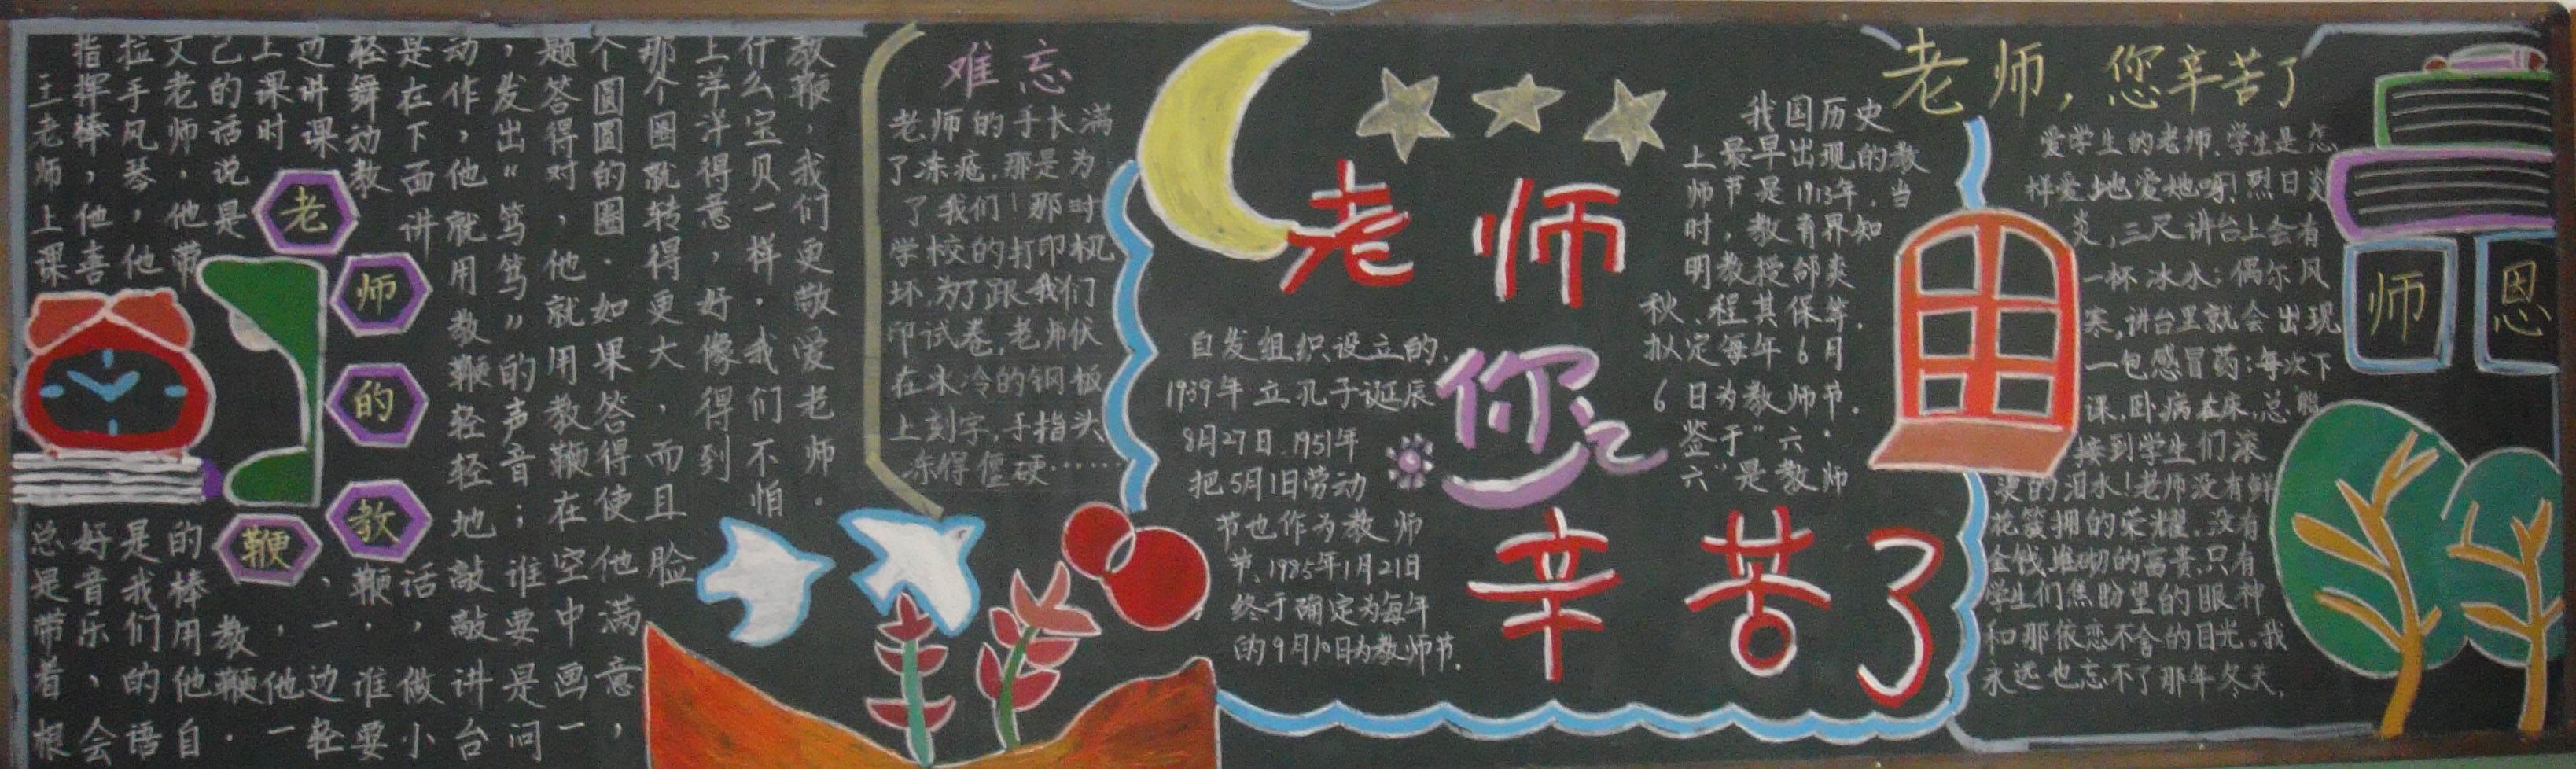 老
师
的
教
鞭
王老师上课总是带着根
指挥棒,他喜好音乐,会
拉手风琴,他是我们的语
文老师,他带的棒用他自
己的话说是教鞭.
上课时,他一
边讲课,一边轻
轻舞动教鞭,谁要
是在下面讲话,做小
动作,他就用教鞭轻轻地敲敲讲台
,发出“笃笃”的声音;谁要是问
题答得对,他就用教鞭在空中画一
个圆圆的圈.如果答得使他满意,
那个圈就转得更大,而且脸
上洋洋得意,好像得到
什么宝贝一样.我们不怕
教鞭,我们更敬爱老师.
难忘
老师的手长满
了冻疮.那是为
了我们!那时
学校的打印机
坏.为了跟我们
印试卷,老师伏
在冰冷的钢板
上刻字,手指头
冻得僵硬……
老师
您
辛苦了
我国历史
上最早出现的教
师节是1913年.当
时,教育界知
明教授邰爽
秋、程其保等.
拟定每年6月
6日为教师节.
签于“六·
六”是教师
自发组织设立的,
1939年立孔子诞辰
8月27日.1951年
把5月1日劳动
节也作为教师
节.1985年1月21日
终于确定为每年
的9月10日为教师节.
老师,您辛苦了
爱学生的老师.学生是怎
样爱地爱她呀!烈日炎
炎,三尺讲台上会有
一杯冰水;偶尔风
寒,讲台里就会出现
一包感冒药;每次下
课.卧病在床,总能
接到学生们滚
烫的泪水!老师没有鲜
花簇拥的荣耀.没有
金钱堆砌的富贵,只有
学生们焦盼望的眼神
和那依恋不舍的目光.我
永远也忘不了那年冬天,
师恩